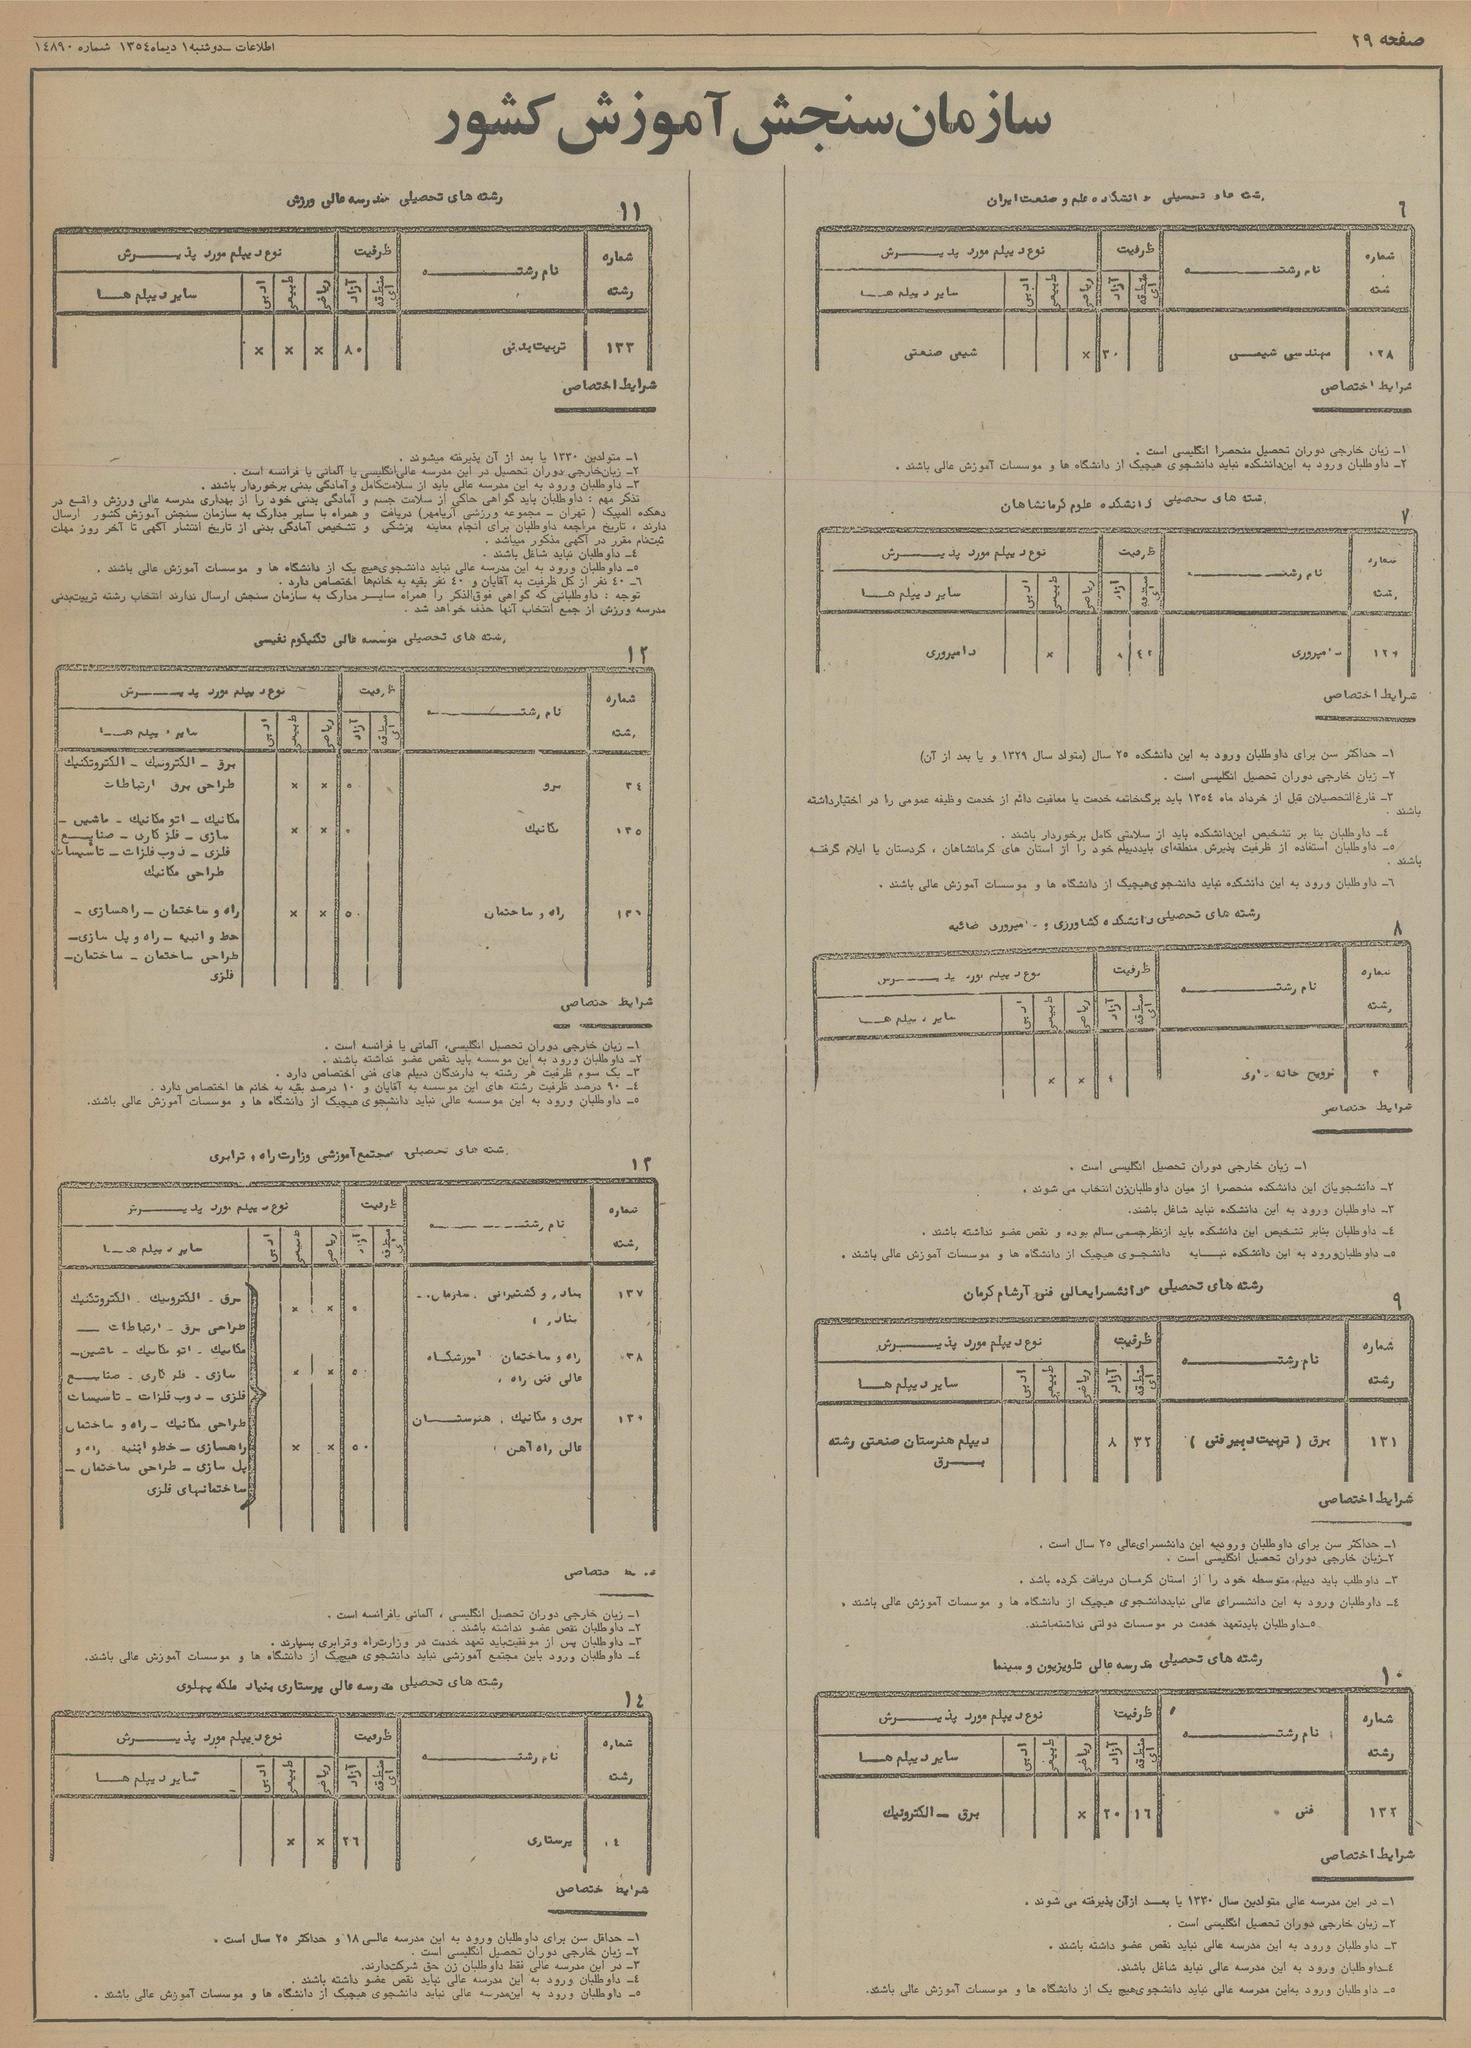 صفحه ٢٩
اطلاعات ـ دوشنبه ١ دیماه ١٣٥٤ شماره ١٤٨٩٠
سازمان سنجش آموزش کشور
٦
تحصیلی دانشکده علم و صنعت ایران
شماره
نام رشته
ظرفیت
نوع دیپلم مورد پذیرش
منطقه ای
آزاد
ریاضی
طبیعی
ادبی
سایر دیپلم ها
مهندسی شیمی
٣٠
×
شیمی صنعتی
شرایط اختصاصی
١ـ زبان خارجی دوران تحصیل منحصرا انگلیسی است .
٢ـ داوطلبان ورود به این‌دانشکده نباید دانشجوی هیچیک از دانشگاه ها و موسسات آموزش عالی باشند .
٧
رشته های تحصیلی دانشکده علوم کرمانشاهان
شماره
رشته
نام رشته
ظرفیت
نوع دیپلم مورد پذیرش
منطقه ای
آزاد
ریاضی
طبیعی
ادبی
سایر دیپلم ها
دامپروری
٤٢
×
دامپروری
شرایط اختصاصی
١ـ حداکثر سن برای داوطلبان ورود به این دانشکده ٢٥ سال (متولد سال ١٣٢٩ و یا بعد از آن)
٢ـ زبان خارجی دوران تحصیل انگلیسی است .
٣ـ فارغ‌التحصیلان قبل از خرداد ماه ١٣٥٤ باید برگ‌خاتمه خدمت یا معافیت دائم از خدمت وظیفه عمومی را در اختیارداشته
باشند .
٤ـ داوطلبان بنا بر تشخیص این‌دانشکده باید از سلامتی کامل برخوردار باشند .
٥ـ داوطلبان استفاده از ظرفیت پذیرش منطقه‌ای بایددیپلم خود را از استان های کرمانشاهان ، کردستان یا ایلام گرفته
باشند .
٦ـ داوطلبان ورود به این دانشکده نباید دانشجوی‌هیچیک از دانشگاه ها و موسسات آموزش عالی باشند .
٨
رشته های تحصیلی دانشکده کشاورزی و دامپروری
شماره
رشته
نام رشته
ظرفیت
نوع دیپلم مورد پذیرش
منطقه ای
آزاد
ریاضی
طبیعی
ادبی
سایر دیپلم ها
ترویج خانه داری
×
×
شرایط اختصاصی
١ـ زبان خارجی دوران تحصیل انگلیسی است .
٢ـ دانشجویان این دانشکده منحصرا از میان داوطلبان‌زن انتخاب می شوند .
٣ـ داوطلبان ورود به این دانشکده نباید شاغل باشند.
٤ـ داوطلبان بنابر تشخیص این دانشکده باید ازنظرجسمی سالم بوده و نقص عضو نداشته باشند .
٥ـ داوطلبان‌ورود به این دانشکده دانشجوی هیچیک از دانشگاه ها و موسسات آموزش عالی باشند .
٩
رشته های تحصیلی دانشسرایعالی فنی آرشام کرمان
شماره
رشته
نام رشته
ظرفیت
نوع دیپلم مورد پذیرش
منطقه ای
آزاد
ریاضی
طبیعی
ادبی
سایر دیپلم ها
١٣١
برق ( تربیت دبیر فنی )
٣٢
٨
دیپلم هنرستان صنعتی رشته
برق
شرایط اختصاصی
١ـ حداکثر سن برای داوطلبان ورودبه این دانشسرای‌عالی ٢٥ سال است .
٢ـزبان خارجی دوران تحصیل انگلیسی است .
٣ـ داوطلب باید دیپلم‌متوسطه خود را از استان کرمان دریافت کرده باشد .
٤ـ داوطلبان ورود به این دانشسرای عالی نبایددانشجوی هیچیک از دانشگاه ها و موسسات آموزش عالی باشند .
٥ـداوطلبان بایدتعهد خدمت در موسسات دولتی نداشته‌باشند.
١٠
رشته های تحصیلی مدرسه عالی تلویزیون و سینما
شماره
رشته
نام رشته
ظرفیت
نوع دیپلم مورد پذیرش
منطقه ای
آزاد
ریاضی
طبیعی
ادبی
سایر دیپلم ها
١٣٢
فنی
١٦
٢٠
×
برق ـ الکترونیک
شرایط اختصاصی
١ـ در این مدرسه عالی متولدین سال ١٣٣٠ یا بعد ازآن پذیرفته می شوند .
٢ـ زبان خارجی دوران تحصیل انگلیسی است .
٣ـ داوطلبان ورود به این مدرسه عالی نباید نقص عضو داشته باشند .
٤ـداوطلبان ورود به این مدرسه عالی نباید شاغل باشند.
٥ـ داوطلبان ورود به‌این مدرسه عالی نباید دانشجوی‌هیچ یک از دانشگاه ها و موسسات آموزش عالی باشند.
١١
رشته های تحصیلی مدرسه عالی ورزش
شماره
رشته
نام رشته
ظرفیت
نوع دیپلم مورد پذیرش
منطقه ای
آزاد
ریاضی
طبیعی
ادبی
سایر دیپلم ها
١٣٣
تربیت بدنی
٨٠
×
×
×
شرایط اختصاصی
١ـ متولدین ١٣٣٠ یا بعد از آن پذیرفته میشوند .
٢ـ زبان‌خارجی دوران تحصیل در این مدرسه عالی‌انگلیسی یا آلمانی یا فرانسه است .
٣ـ داوطلبان ورود به این مدرسه عالی باید از سلامت‌کامل وآمادگی بدنی برخوردار باشند .
تذکر مهم : داوطلبان باید گواهی حاکی از سلامت جسم و آمادگی بدنی خود را از بهداری مدرسه عالی ورزش واقع در
دهکده المپیک ( تهران ـ مجموعه ورزشی آریامهر) دریافت و همراه با سایر مدارک به سازمان سنجش آموزش کشور ارسال
دارند ، تاریخ مراجعه داوطلبان برای انجام معاینه پزشکی و تشخیص آمادگی بدنی از تاریخ انتشار آگهی تا آخر روز مهلت
ثبت‌نام مقرر در آگهی مذکور میباشد .
٤ـ داوطلبان نباید شاغل باشند .
٥ـ داوطلبان ورود به این مدرسه عالی نباید دانشجوی‌هیچ یک از دانشگاه ها و موسسات آموزش عالی باشند .
٦ـ ٤٠ نفر از کل ظرفیت به آقایان و ٤٠ نفر بقیه به خانم‌ها اختصاص دارد .
توجه : داوطلبانی که گواهی فوق‌الذکر را همراه سایر مدارک به سازمان سنجش ارسال ندارند انتخاب رشته تربیت‌بدنی
مدرسه ورزش از جمع انتخاب آنها حذف خواهد شد .
١٢
رشته های تحصیلی موسسه عالی تکنیکوم نفیسی
شماره
رشته
نام رشته
ظرفیت
نوع دیپلم مورد پذیرش
منطقه ای
آزاد
ریاضی
طبیعی
ادبی
سایر دیپلم ها
×
×
برق ـ الکترونیک ـ الکتروتکنیک
طراحی برق ارتباطات
١٣٥
مکانیک
×
×
مکانیک ـ اتو مکانیک ـ ماشین ـ
سازی ـ فلز کاری ـ صنایع
فلزی ـ ذوب فلزات ـ تأسیسات
طراحی مکانیک
راه و ساختمان
٥٠
×
×
راه و ساختمان ـ راهسازی ـ
خط و ابنیه ـ راه و پل سازی ـ
طراحی ساختمان ـ ساختمان ـ
فلزی
شرایط اختصاصی
١ـ زبان خارجی دوران تحصیل انگلیسی، آلمانی یا فرانسه است .
٢ـ داوطلبان ورود به این موسسه باید نقص عضو نداشته باشند .
٣ـ یک سوم ظرفیت هر رشته به دارندگان دیپلم های فنی اختصاص دارد .
٤ـ ٩٠ درصد ظرفیت رشته های این موسسه به آقایان و ١٠ درصد بقیه به خانم ها اختصاص دارد .
٥ـ داوطلبان ورود به این موسسه عالی نباید دانشجوی هیچیک از دانشگاه ها و موسسات آموزش عالی باشند.
١٣
رشته های تحصیلی مجتمع آموزشی وزارت راه و ترابری
شماره
رشته
نام رشته
ظرفیت
نوع دیپلم مورد پذیرش
منطقه ای
آزاد
ریاضی
طبیعی
ادبی
سایر دیپلم ها
١٣٧
بنادر و کشتیرانی
×
×
راه و ساختمان آموزشگاه
عالی فنی راه
×
×
برق و مکانیک هنرستان
عالی راه آهن
٥٠
×
×
برق ـ الکترونیک الکتروتکنیک
طراحی برق ـ ارتباطات ـ
مکانیک ـ اتو مکانیک ـ ماشین ـ
سازی ـ فلز کاری ـ صنایع
فلزی ـ ذوب فلزات ـ تاسیسات
طراحی مکانیک ـ راه و ساختمان
راهسازی ـ خط و ابنیه راه و
پل سازی ـ طراحی ساختمان ـ
ساختمانهای فلزی
١ـ زبان خارجی دوران تحصیل انگلیسی ، آلمانی یافرانسه است .
٢ـ داوطلبان نقص عضو نداشته باشند .
٣ـ داوطلبان پس از موفقیت‌باید تعهد خدمت در وزارت‌راه وترابری بسپارند .
٤ـ داوطلبان ورود باین مجتمع آموزشی نباید دانشجوی هیچیک از دانشگاه ها و موسسات آموزش عالی باشند.
١٤
رشته های تحصیلی مدرسه عالی پرستاری بنیاد ملکه پهلوی
شماره
رشته
نام رشته
ظرفیت
نوع دیپلم مورد پذیرش
منطقه ای
آزاد
ریاضی
طبیعی
ادبی
سایر دیپلم ها
پرستاری
٢٦
×
×
شرایط اختصاصی
١ـ حداقل سن برای داوطلبان ورود به این مدرسه عالی ١٨ و حداکثر ٢٥ سال است .
٢ـ زبان خارجی دوران تحصیل انگلیسی است .
٣ـ در این مدرسه عالی فقط داوطلبان زن حق شرکت‌دارند.
٤ـ داوطلبان ورود به این مدرسه عالی نباید نقص عضو داشته باشند .
٥ـ داوطلبان ورود به این‌مدرسه عالی نباید دانشجوی هیچیک از دانشگاه ها و موسسات آموزش عالی باشند .